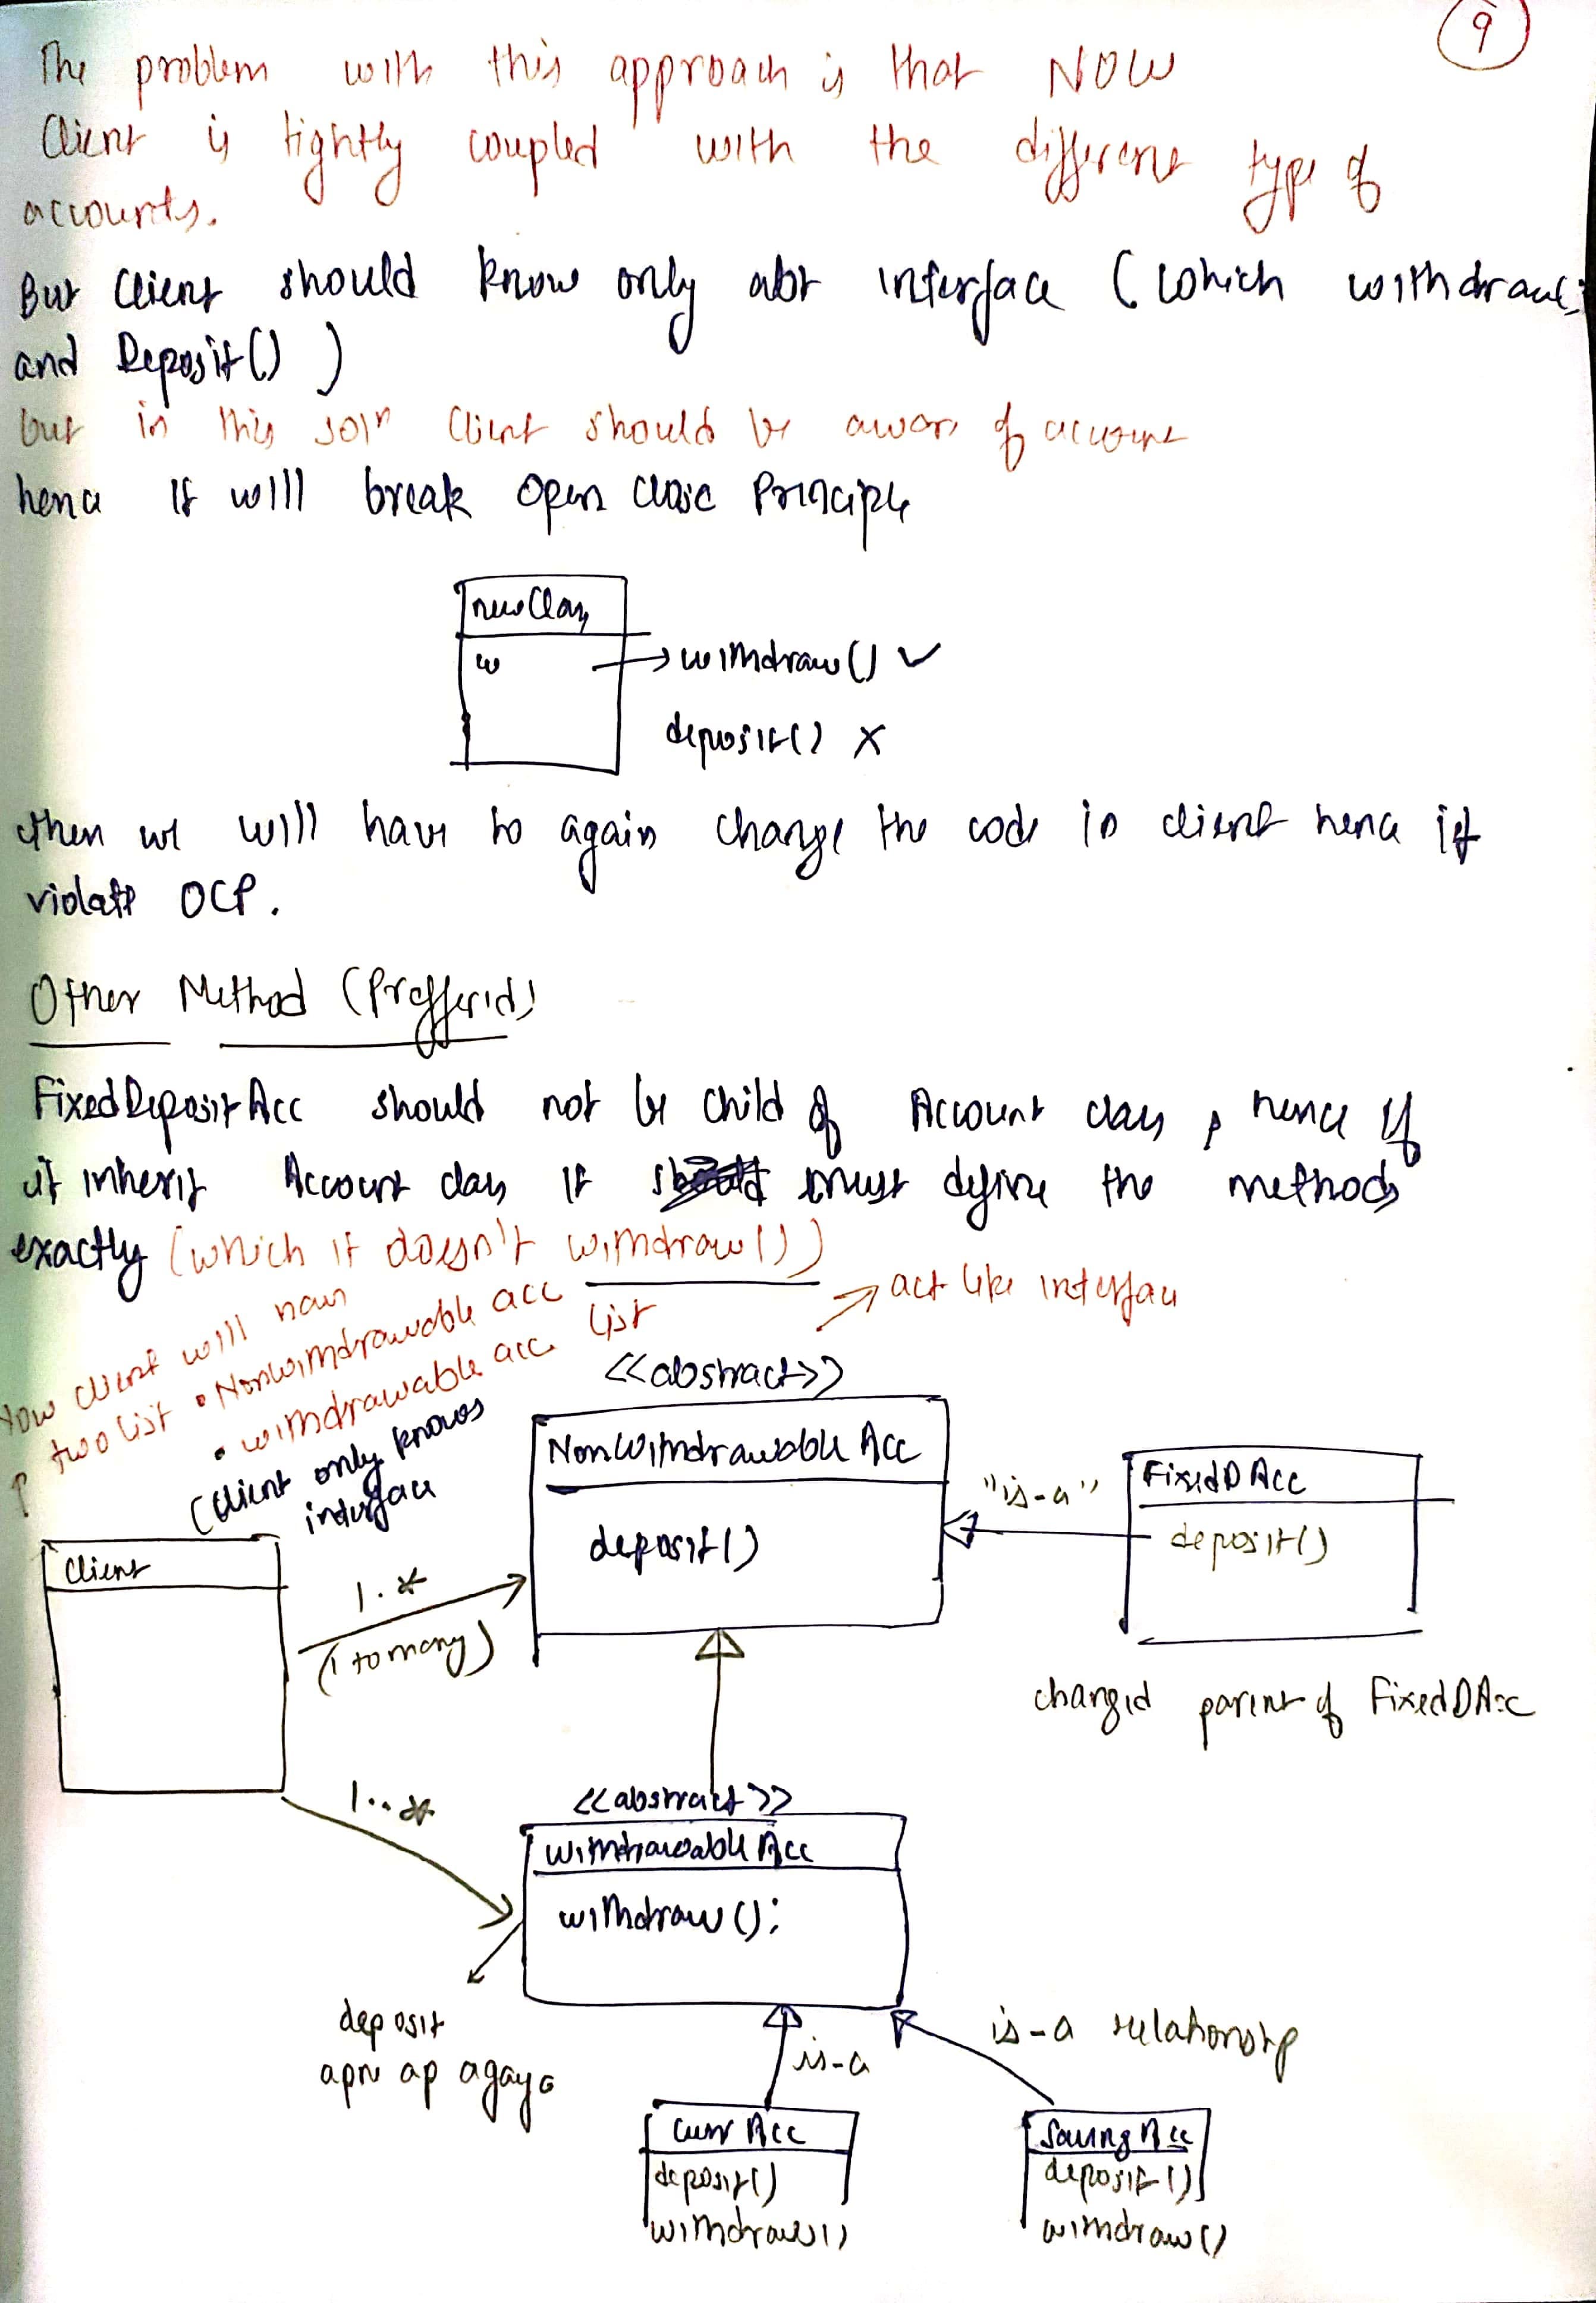 9
The problem with this approach is that NOW
Client is tightly coupled with the different type of
accounts.
But Client should know only abt interface (which withdraw()
and Deposit() )
but in this solⁿ Client should be aware of account
hence it will break Open Close Principle
newClass
w → withdraw() ✓
deposit() ×
then we will have to again change the code in client hence it
violate OCP.
Other Method (Prefferid)
FixedDeposit Acc should not be child of Account class, hence if
it inherit Account class it must define the methods
exactly (which it doesn't withdraw())
Now client will have
two list • NonWithdrawable acc list
• withdrawable acc
(Client only knows
interface
act like interface
<<abstract>>
NonWithdrawable Acc
deposit()
"is-a"
FixedD Acc
deposit()
changed parent of FixedDAcc
Client
1.*
(1 to many)
1..*
<<abstract>>
Withdrawable Acc
withdraw();
deposit
apne ap agaya
is-a
is-a relationship
Curr Acc
deposit()
withdraw()
Saving Acc
deposit()
withdraw()